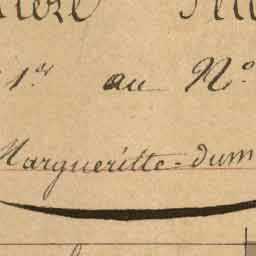 1er au No
Margueritte-dum